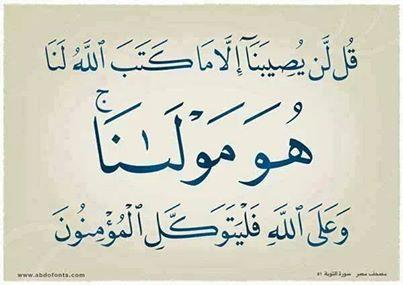 قُل لَّن يُصِيبَنَآ إِلَّا مَا كَتَبَ ٱللَّهُ لَنَا
هُوَ مَوْلَىٰنَا ۚ
وَعَلَى ٱللَّهِ فَلْيَتَوَكَّلِ ٱلْمُؤْمِنُونَ
مصحف مصر سورة التوبة ٥١
www.abdofonts.com